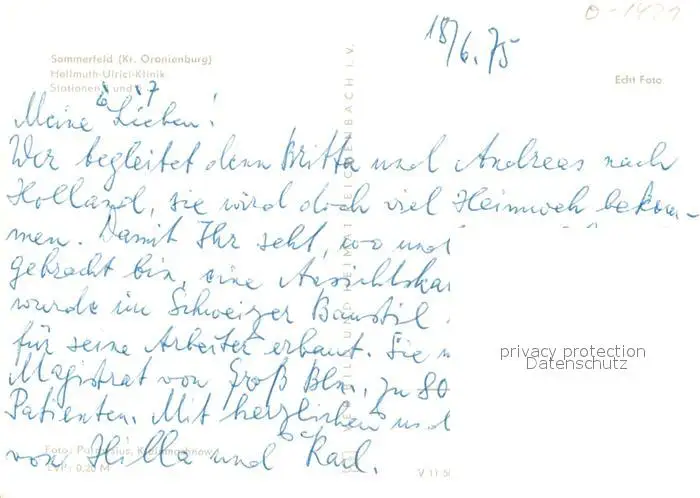 18/6.75
Sommerfeld (Kr. Oranienburg)
Hellmuth-Ulrici-Klinik
Stationen 6 und 7
Echt Foto
Meine Lieben!
Wer begleitet denn Britta und Andreas nach
Holland, sie wird doch viel Heimweh bekom-
men. Damit Ihr seht, wo und
gebracht bin, eine Ansichtskar
wurde im Schweizer Baustil
für seine Arbeiter erbaut. Sie
Magistrat von Groß Bln, zu 80
Patienten. Mit herzlichen und
von Hilla und Karl.
Foto:
EVP: 0,20 M
V 11 50
BILD UND HEIMAT REICHENBACH I. V.
privacy protection
Datenschutz